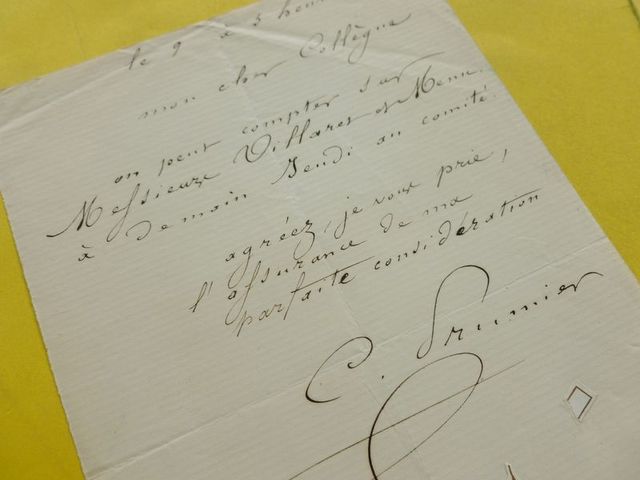 le 9 à 3 heu
mon cher Collègue
on peut compter sur
Messieurs Villaret et Menu
à demain Jeudi au comité.
agréez, je vous prie,
l'assurance de ma
parfaite considération
C. Prumier